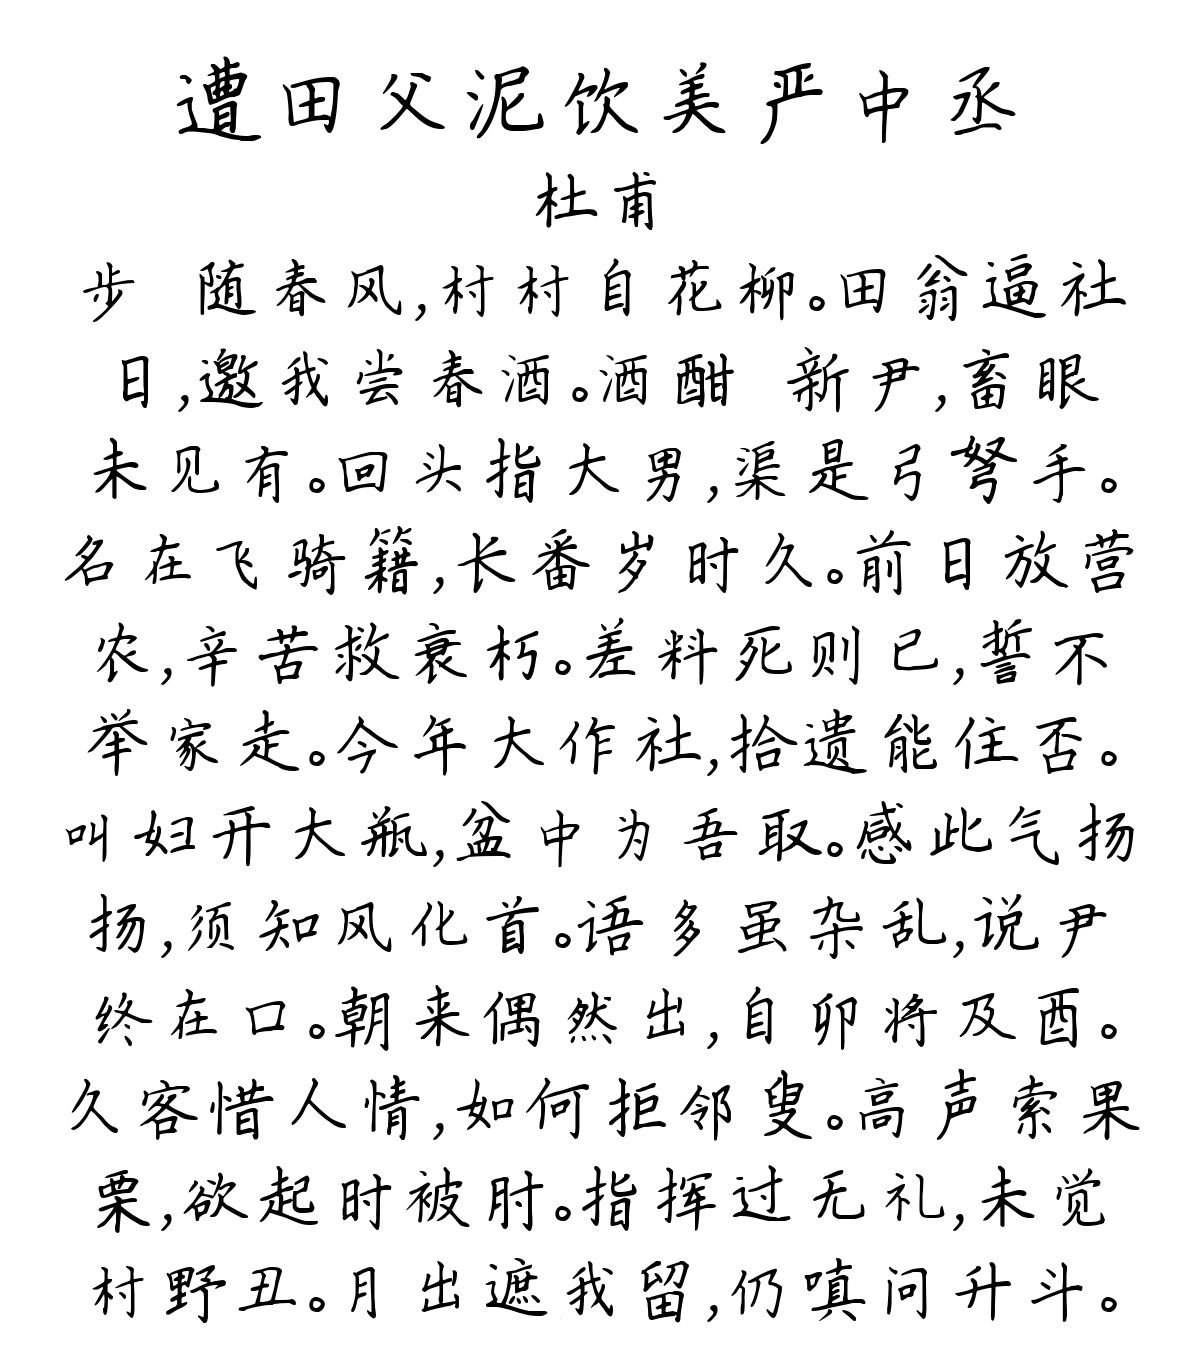 遭田父泥饮美严中丞
杜甫
步 随春风,村村自花柳。田翁逼社
日,邀我尝春酒。酒酣 新尹,畜眼
未见有。回头指大男,渠是弓弩手。
名在飞骑籍,长番岁时久。前日放营
农,辛苦救衰朽。差料死则已,誓不
举家走。今年大作社,拾遗能住否。
叫妇开大瓶,盆中为吾取。感此气扬
扬,须知风化首。语多虽杂乱,说尹
终在口。朝来偶然出,自卯将及酉。
久客惜人情,如何拒邻叟。高声索果
栗,欲起时被肘。指挥过无礼,未觉
村野丑。月出遮我留,仍嗔问升斗。